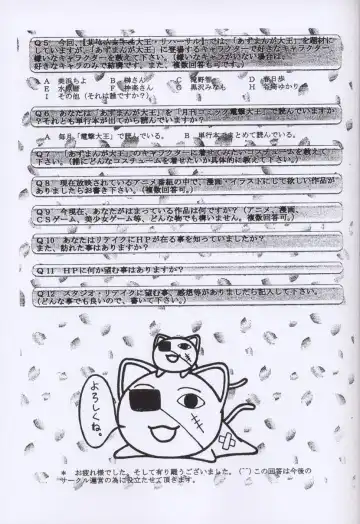 Q5 今回、【某幼◯番◯大王・リハーサル】では、「あずまんが大王」を題材に
していますが、「あずまんが大王」に登場するキャラクターで好きなキャラクター、
嫌いなキャラクターを教えて下さい。(嫌いなキャラがいない場合は、
好きなキャラのみで結構です。また、複数回答も可です。)
A 美浜ちよ B 榊さん C 滝野智 D 春日歩
E 水原暦 F 神楽さん G 黒沢みなも H 谷崎ゆかり
I その他(それは誰ですか?)
Q6 あなたは「あずまんが大王」を「月刊コミック電撃大王」で読んでいますか
それとも単行本が出てから読んでいますか?
A 毎月「電撃大王」で読んでいる。 B 単行本でまとめて読んでいる。
Q7 「あずまんが大王」のキャラクターに着せてみたいコスチュームを教えて
下さい。(誰にどんなコスチュームを着せたいか具体的に教えて下さい。)
Q8 現在放映されているアニメ番組の中で、漫画・イラストにして欲しい作品が
ありましたらお書き下さい。(複数回答可。)
Q9 今現在、あなたがはまっている作品は何ですか?(アニメ、漫画、
CSゲーム、美少女ゲーム等、どんな物でも構いません。複数回答可。)
Q10 あなたはリテイクにHPが在る事を知っていましたか?
また、訪れた事はありますか?
Q11 HPに何か望む事はありますか?
Q12 スタジオ・リテイクに望む事、感想等がありましたら記入して下さい。
(どんな事でも良いので、書いて下さい。)
よろしくね。
* お疲れ様でした。そして有り難うございました。(^^)この回答は今後の
サークル運営の為に役立たせて頂きます。